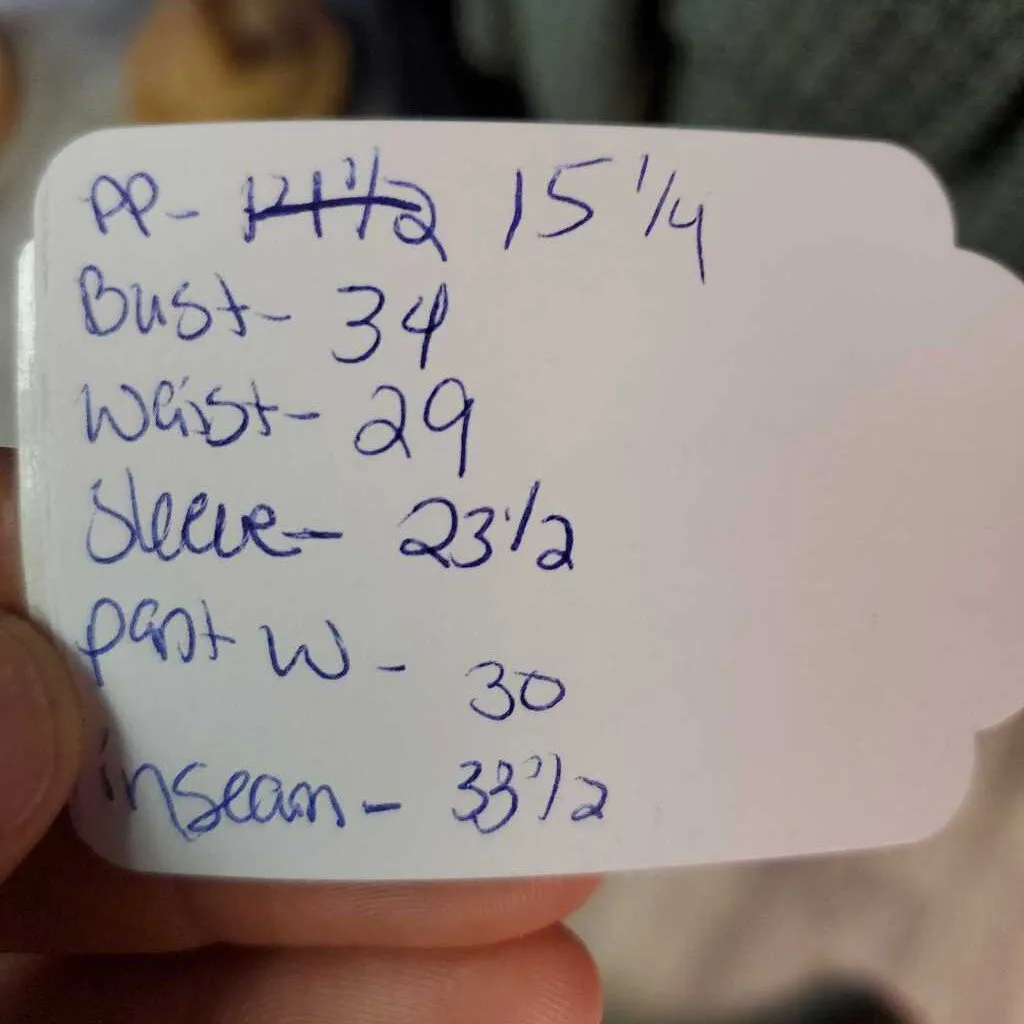 PP- 15 1/4
Bust- 34
Waist- 29
Sleeve- 23 1/2
pant W - 30
inseam - 33 1/2